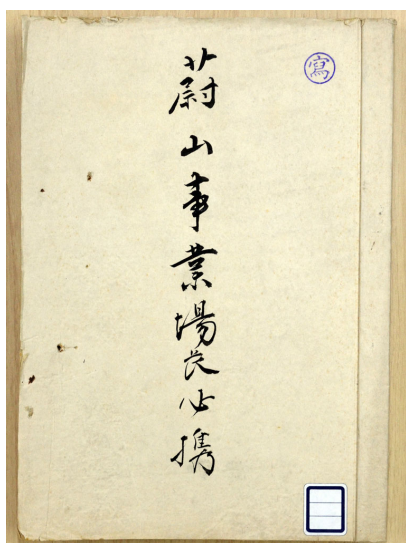 寫
蔚山事業場長必携